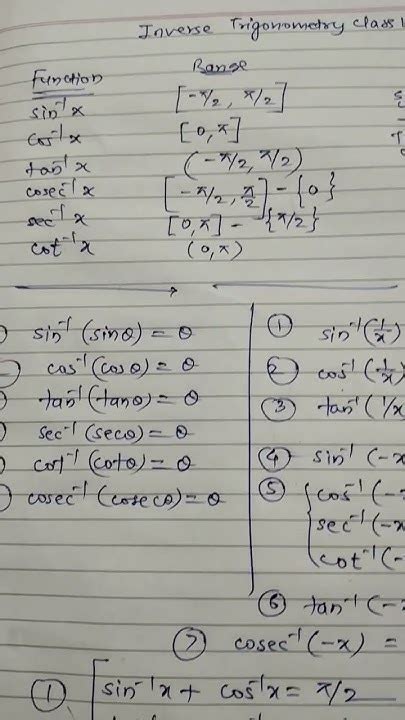 Inverse Trigonometry Class
Function Range
sin⁻¹x [-π/2, π/2]
cos⁻¹x [0, π]
tan⁻¹x (-π/2, π/2)
cosec⁻¹x [-π/2, π/2] - {0}
sec⁻¹x [0, π] - {π/2}
cot⁻¹x (0, π)
sin⁻¹(sinθ) = θ
cos⁻¹(cosθ) = θ
tan⁻¹(tanθ) = θ
sec⁻¹(secθ) = θ
cot⁻¹(cotθ) = θ
cosec⁻¹(cosecθ) = θ
① sin⁻¹(1/x)
② cos⁻¹(1/x)
③ tan⁻¹(1/x)
④ sin⁻¹(-x
⑤ cos⁻¹(-
sec⁻¹(-x
cot⁻¹(-
⑥ tan⁻¹(-
⑦ cosec⁻¹(-x) =
① sin⁻¹x + cos⁻¹x = π/2